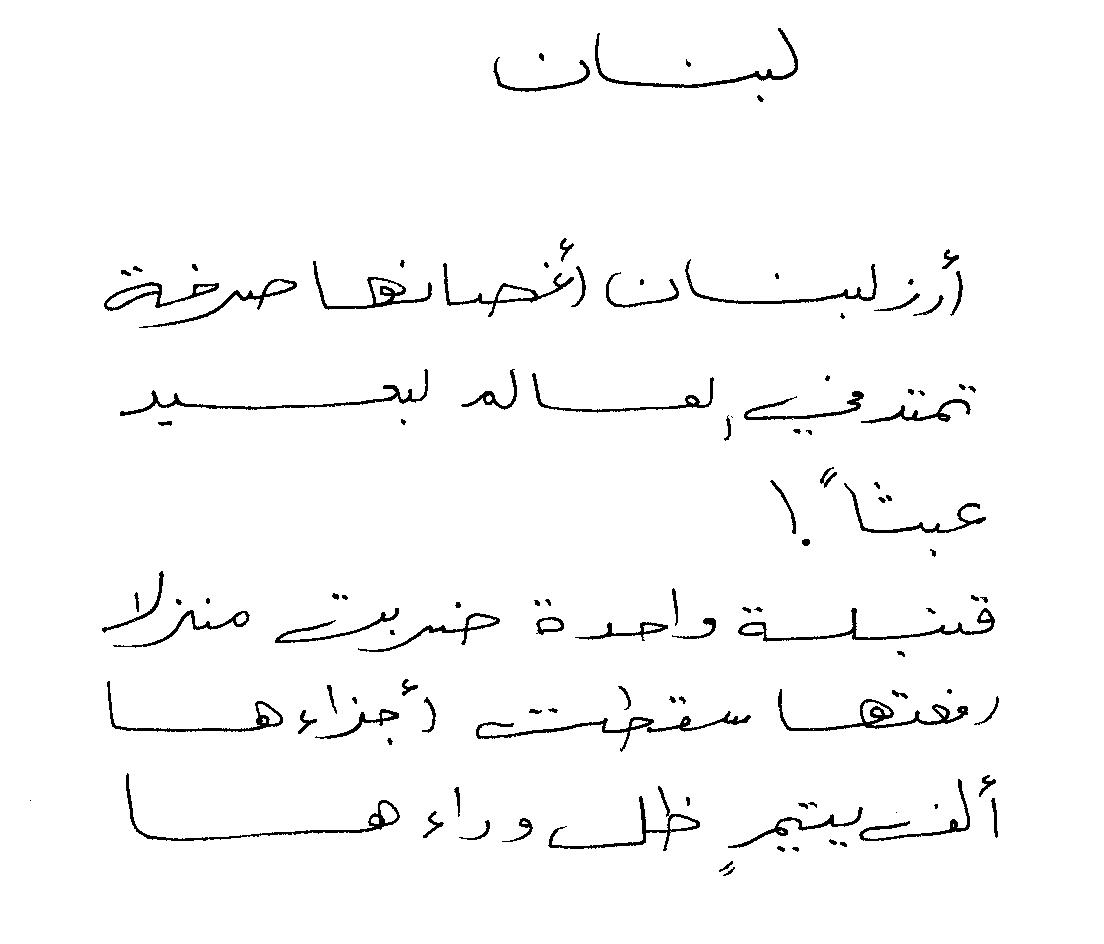 لبنان
أرز لبنان أغصانها صرخة
تمتد في إلعالم لبعيد
عبثاً !
قنبلة واحدة ضربت منزلا
رفعتها سقطت أجزاءها
ألف يتيمٍ ظل وراءها